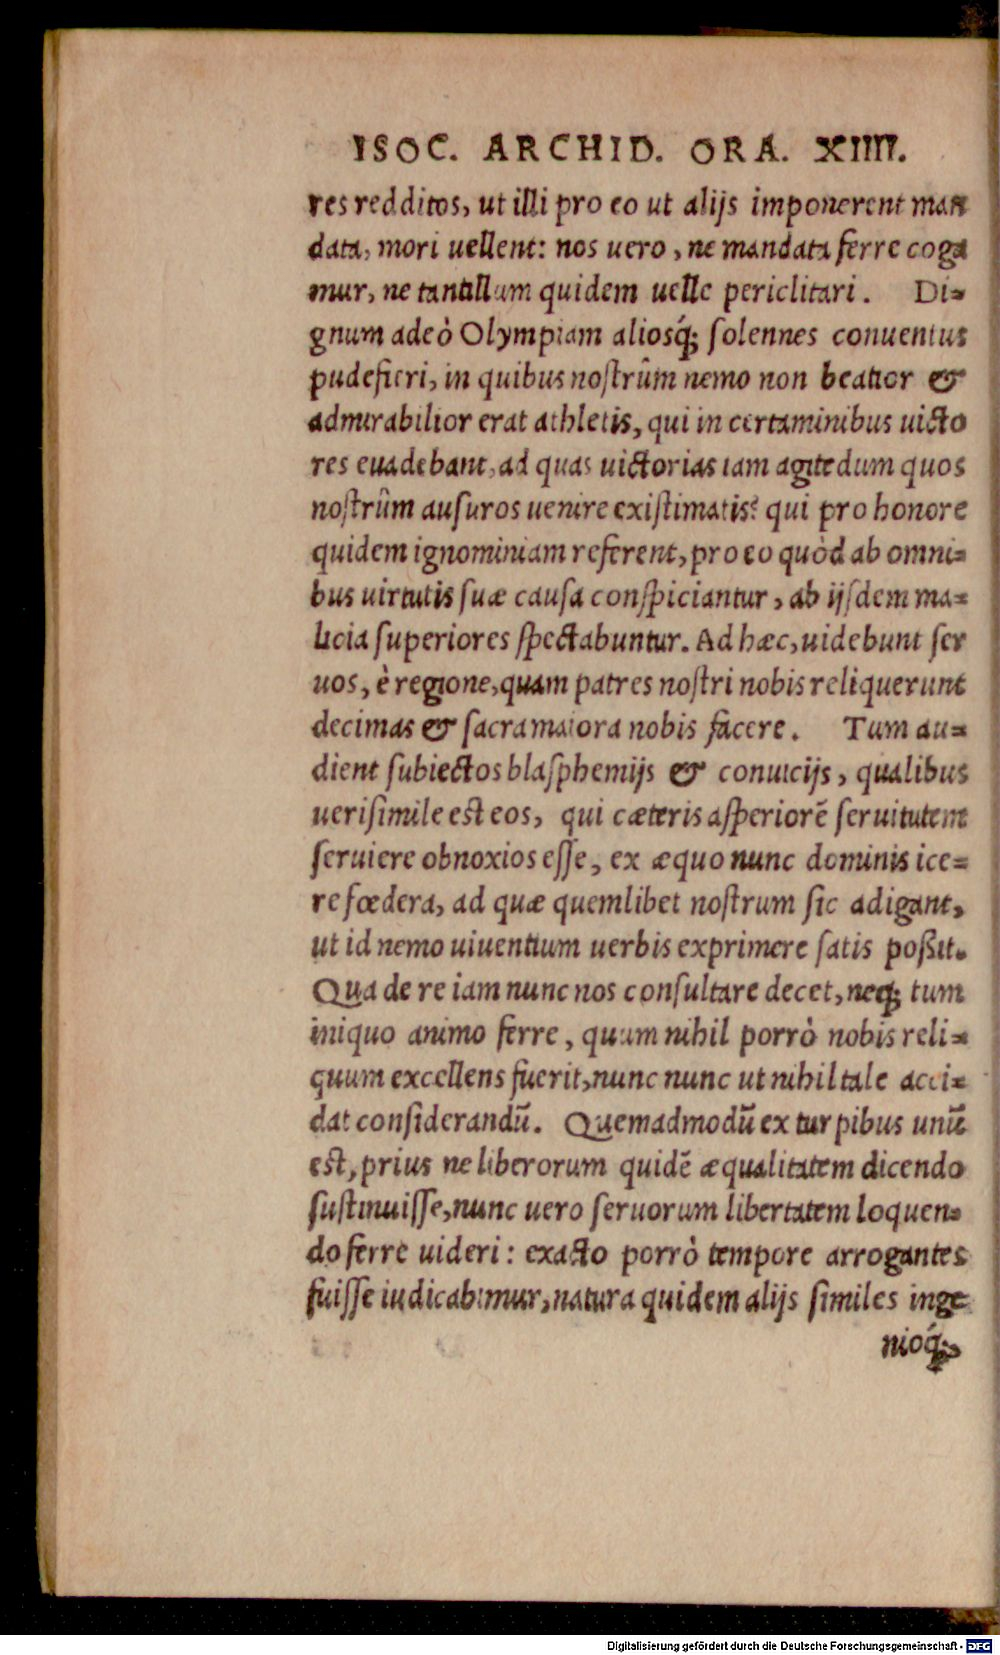 ISOC. ARCHID. ORA. XIIII.
res redditos, ut illi pro eo ut alijs imponerent man
data, mori uellent: nos uero, ne mandata ferre coga
mur, ne tantillum quidem uelle periclitari. Di-
gnum adeò Olympiam aliosq́; ſolennes conuentus
pudefieri, in quibus noſtrûm nemo non beatior &
admirabilior erat athletis, qui in certaminibus uicto
res euadebant, ad quas uictorias iam agitedum quos
noſtrûm auſuros uenire exiſtimatis? qui pro honore
quidem ignominiam referent, pro eo quòd ab omni-
bus uirtutis ſuæ cauſa conſpiciantur, ab ijſdem ma-
licia ſuperiores ſpectabuntur. Ad hæc, uidebunt ſer
uos, è regione, quam patres noſtri nobis reliquerunt
decimas & ſacra maiora nobis facere. Tum au-
dient ſubiectos blaſphemijs & conuicijs, qualibus
ueriſimile est eos, qui cæteris aſperiorē ſeruitutem
ſeruiere obnoxios eſſe, ex æquo nunc dominis ice-
re fœdera, ad quæ quemlibet noſtrum ſic adigant,
ut id nemo uiuentium uerbis exprimere ſatis poßit.
Qua de re iam nunc nos conſultare decet, neq; tum
iniquo animo ferre, quum nihil porrò nobis reli-
quum excellens fuerit, nunc nunc ut nihil tale acci-
dat conſiderandū. Quemadmodū ex turpibus unū
est, prius ne liberorum quidē æqualitatem dicendo
ſuſtinuiſſe, nunc uero ſeruorum libertatem loquen-
do ferre uideri: exacto porrò tempore arrogantes
fuiſſe iudicabimur, natura quidem alijs ſimiles inge
nioq́;
Digitalisierung gefördert durch die Deutsche Forschungsgemeinschaft - DFG